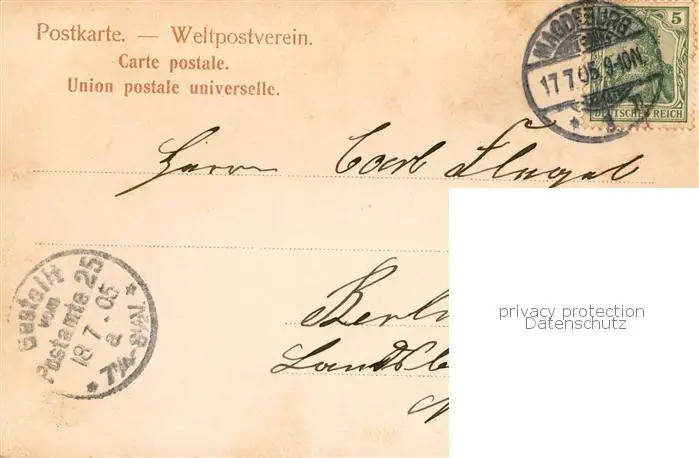 Postkarte. — Weltpostverein.
Carte postale.
Union postale universelle.
MAGDEBURG
17.7.05. 9-10N.
* 1
5
DEUTSCHES REICH
Herrn Carl Flegel
Bestellt
vom
Postamte 25
18 7. 05
a
* 7¼-8½V. *
Berlin
Landsb
N
privacy protection
Datenschutz